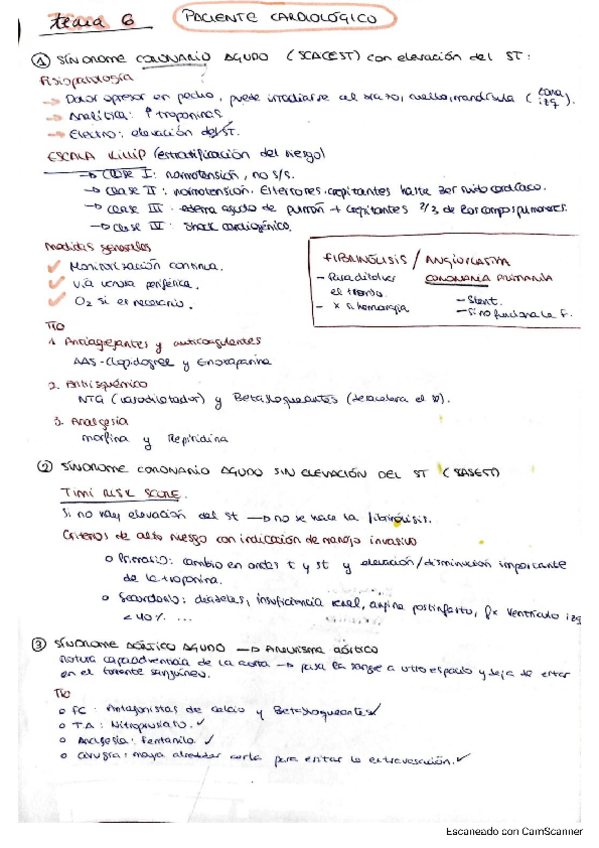 tema 6 PACIENTE CARDIOLÓGICO
① SÍNDROME CORONARIO AGUDO (SCACEST) con elevación del ST:
Fisiopatología
→ Dolor opresor en pecho, puede irradiarse al brazo, cuello, mandíbula (cara izq).
→ Analítica: ↑ troponinas
→ Electro: elevación del ST.
ESCALA Killip (estratificación del riesgo)
→ Clase I: normotensión, no S/S.
→ Clase II: normotensión. Estertores crepitantes hasta 3er ruido cardíaco.
→ Clase III: edema agudo de pulmón + crepitantes 2/3 de los campos pulmonares.
→ Clase IV: shock cardiogénico.
Medidas generales
✓ Monitorización continua.
✓ Vía venosa periférica.
✓ O2 si es necesario.
FIBRINÓLISIS / ANGIOPLASTIA
CORONARIA PRIMARIA
- Para diluir
el trombo.
- x si hemorragia
- Stent.
- Si no funciona la F.
TTO
1. Antiagregantes y anticoagulantes
AAS - Clopidogrel y Enoxaparina
2. Antiisquémico
NTG (vasodilatador) y Betabloqueantes (desacelera el ♡).
3. Analgesia
morfina y Meperidina
② SÍNDROME CORONARIO AGUDO SIN ELEVACIÓN DEL ST (SASEST)
TIMI RISK SCORE.
Si no hay elevación del st → no se hace la fibrinólisis.
Criterios de alto riesgo con indicación de manejo invasivo
o Primario: cambio en ondas t y st y elevación/disminución importante
de la troponina.
o Secundario: diabetes, insuficiencia renal, angina postinfarto, fx ventrículo izq
<40% ...
③ SÍNDROME AÓRTICO AGUDO → ANEURISMA AÓRTICO
Rotura capa adventicia de la aorta → pasa la sangre a otro espacio y deja de estar
en el torrente sanguíneo.
TTO
o FC: Antagonistas de calcio y Betabloqueantes ✓
o TA: Nitroprusiato. ✓
o Analgesia: Fentanilo. ✓
o Cirugía: malla alrededor aorta para evitar la extravasación. ✓
Escaneado con CamScanner